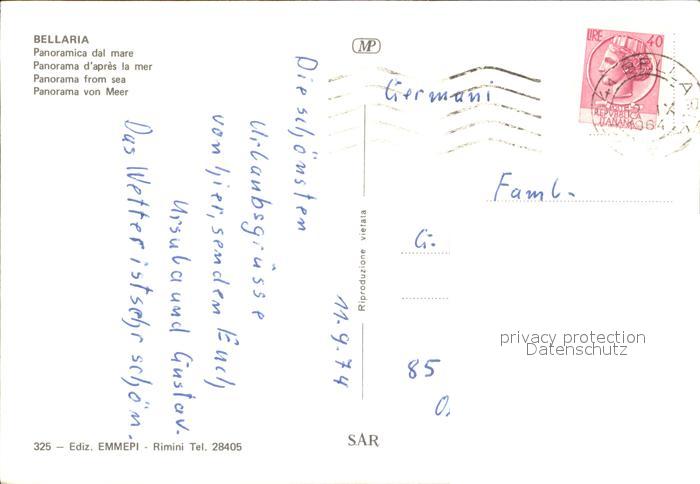 BELLARIA
Panoramica dal mare
Panorama d'après la mer
Panorama from sea
Panorama von Meer
MP
LIRE 40
REPVBBLICA
ITALIANA
Germani
Die schönsten
Urlaubsgrüsse
von hier, senden Euch
Ursula und Gustav.
Das Wetter ist sehr schön.
11.9.74
Riproduzione vietata
Faml.
G.
85
O.
privacy protection
Datenschutz
325 — Ediz. EMMEPI - Rimini Tel. 28405
SAR